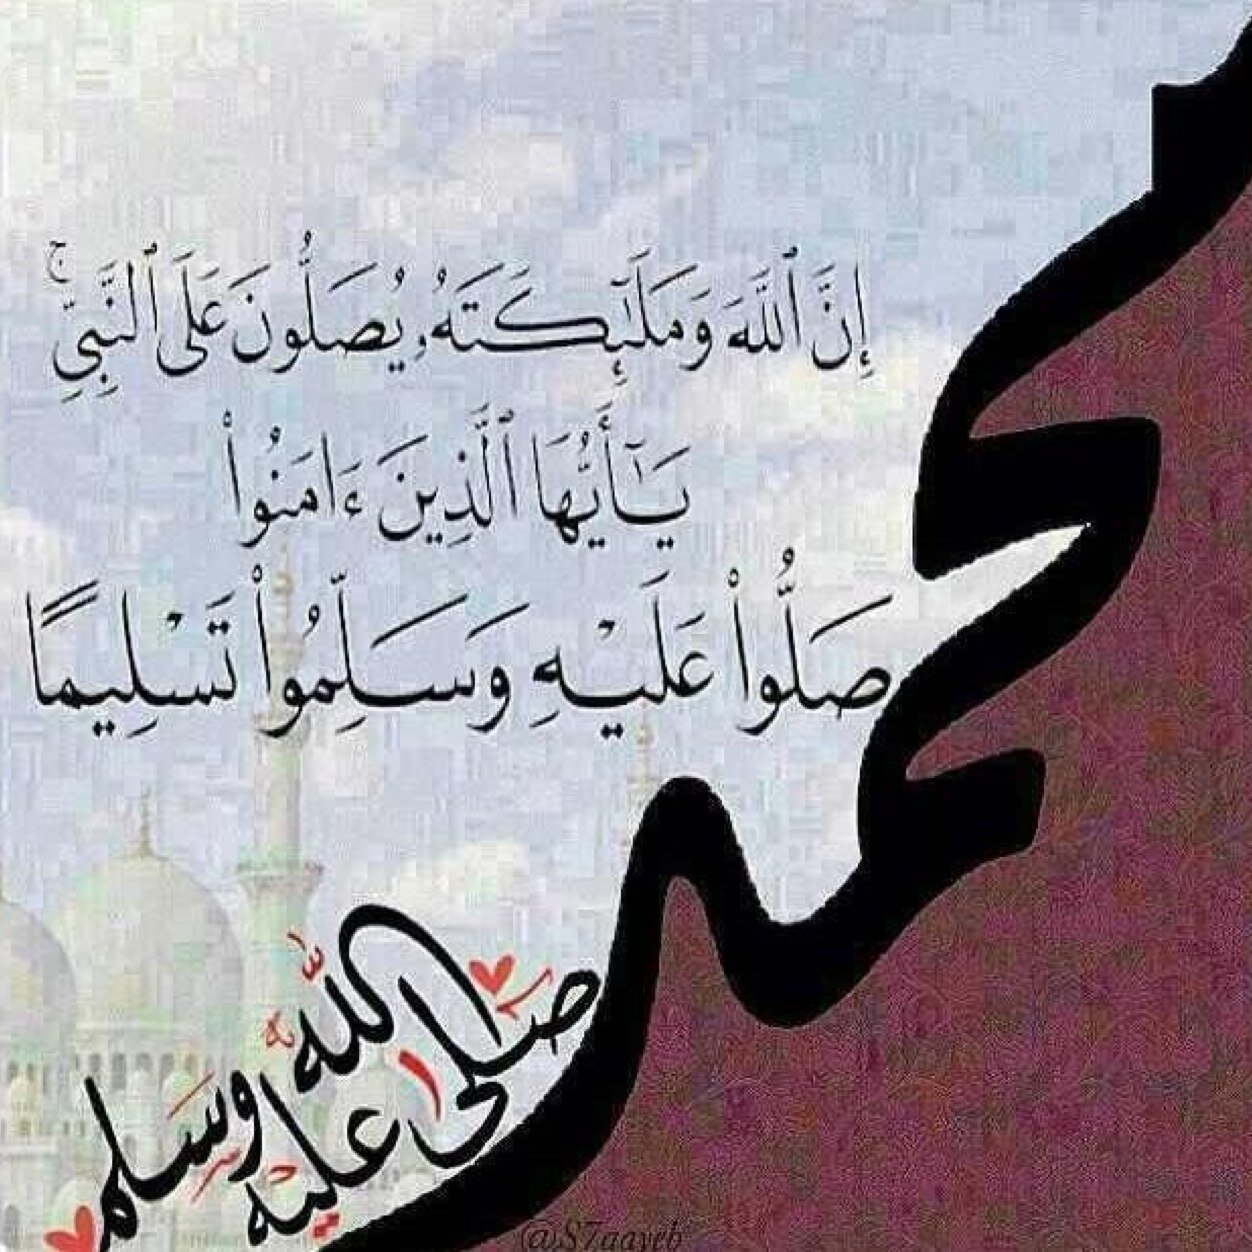 إِنَّ ٱللَّهَ وَمَلَـٰٓئِكَتَهُۥ يُصَلُّونَ عَلَى ٱلنَّبِىِّ ۚ
يَـٰٓأَيُّهَا ٱلَّذِينَ ءَامَنُوا۟
صَلُّوا۟ عَلَيْهِ وَسَلِّمُوا۟ تَسْلِيمًا
محمد
صلى الله عليه وسلم
@S7aayeb